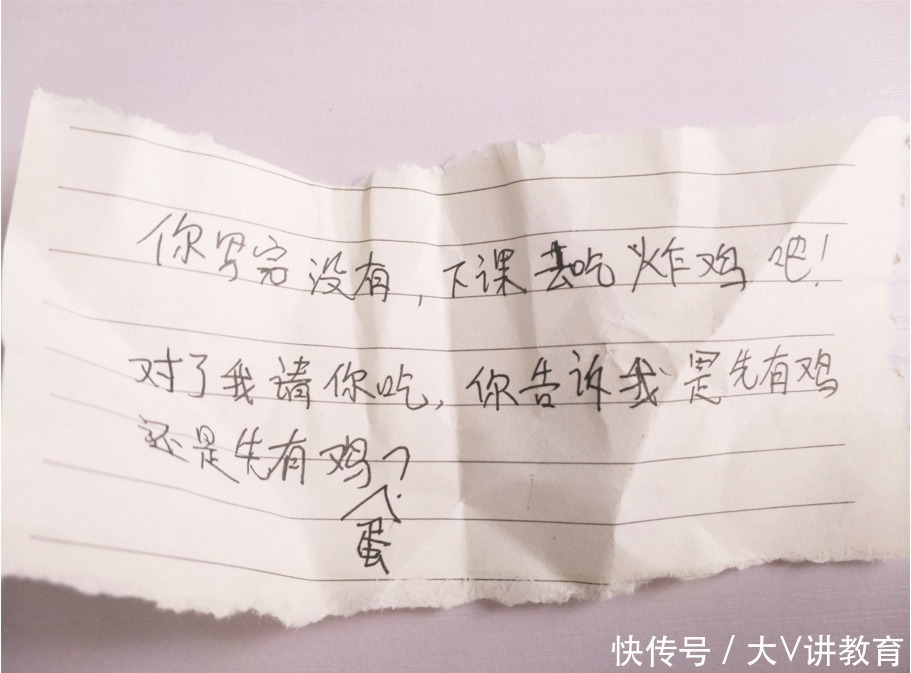 你写完没有,下课去吃炸鸡吧!
对了我请你吃,你告诉我是先有鸡
还是先有鸡?
蛋
快传号 / 大V讲教育